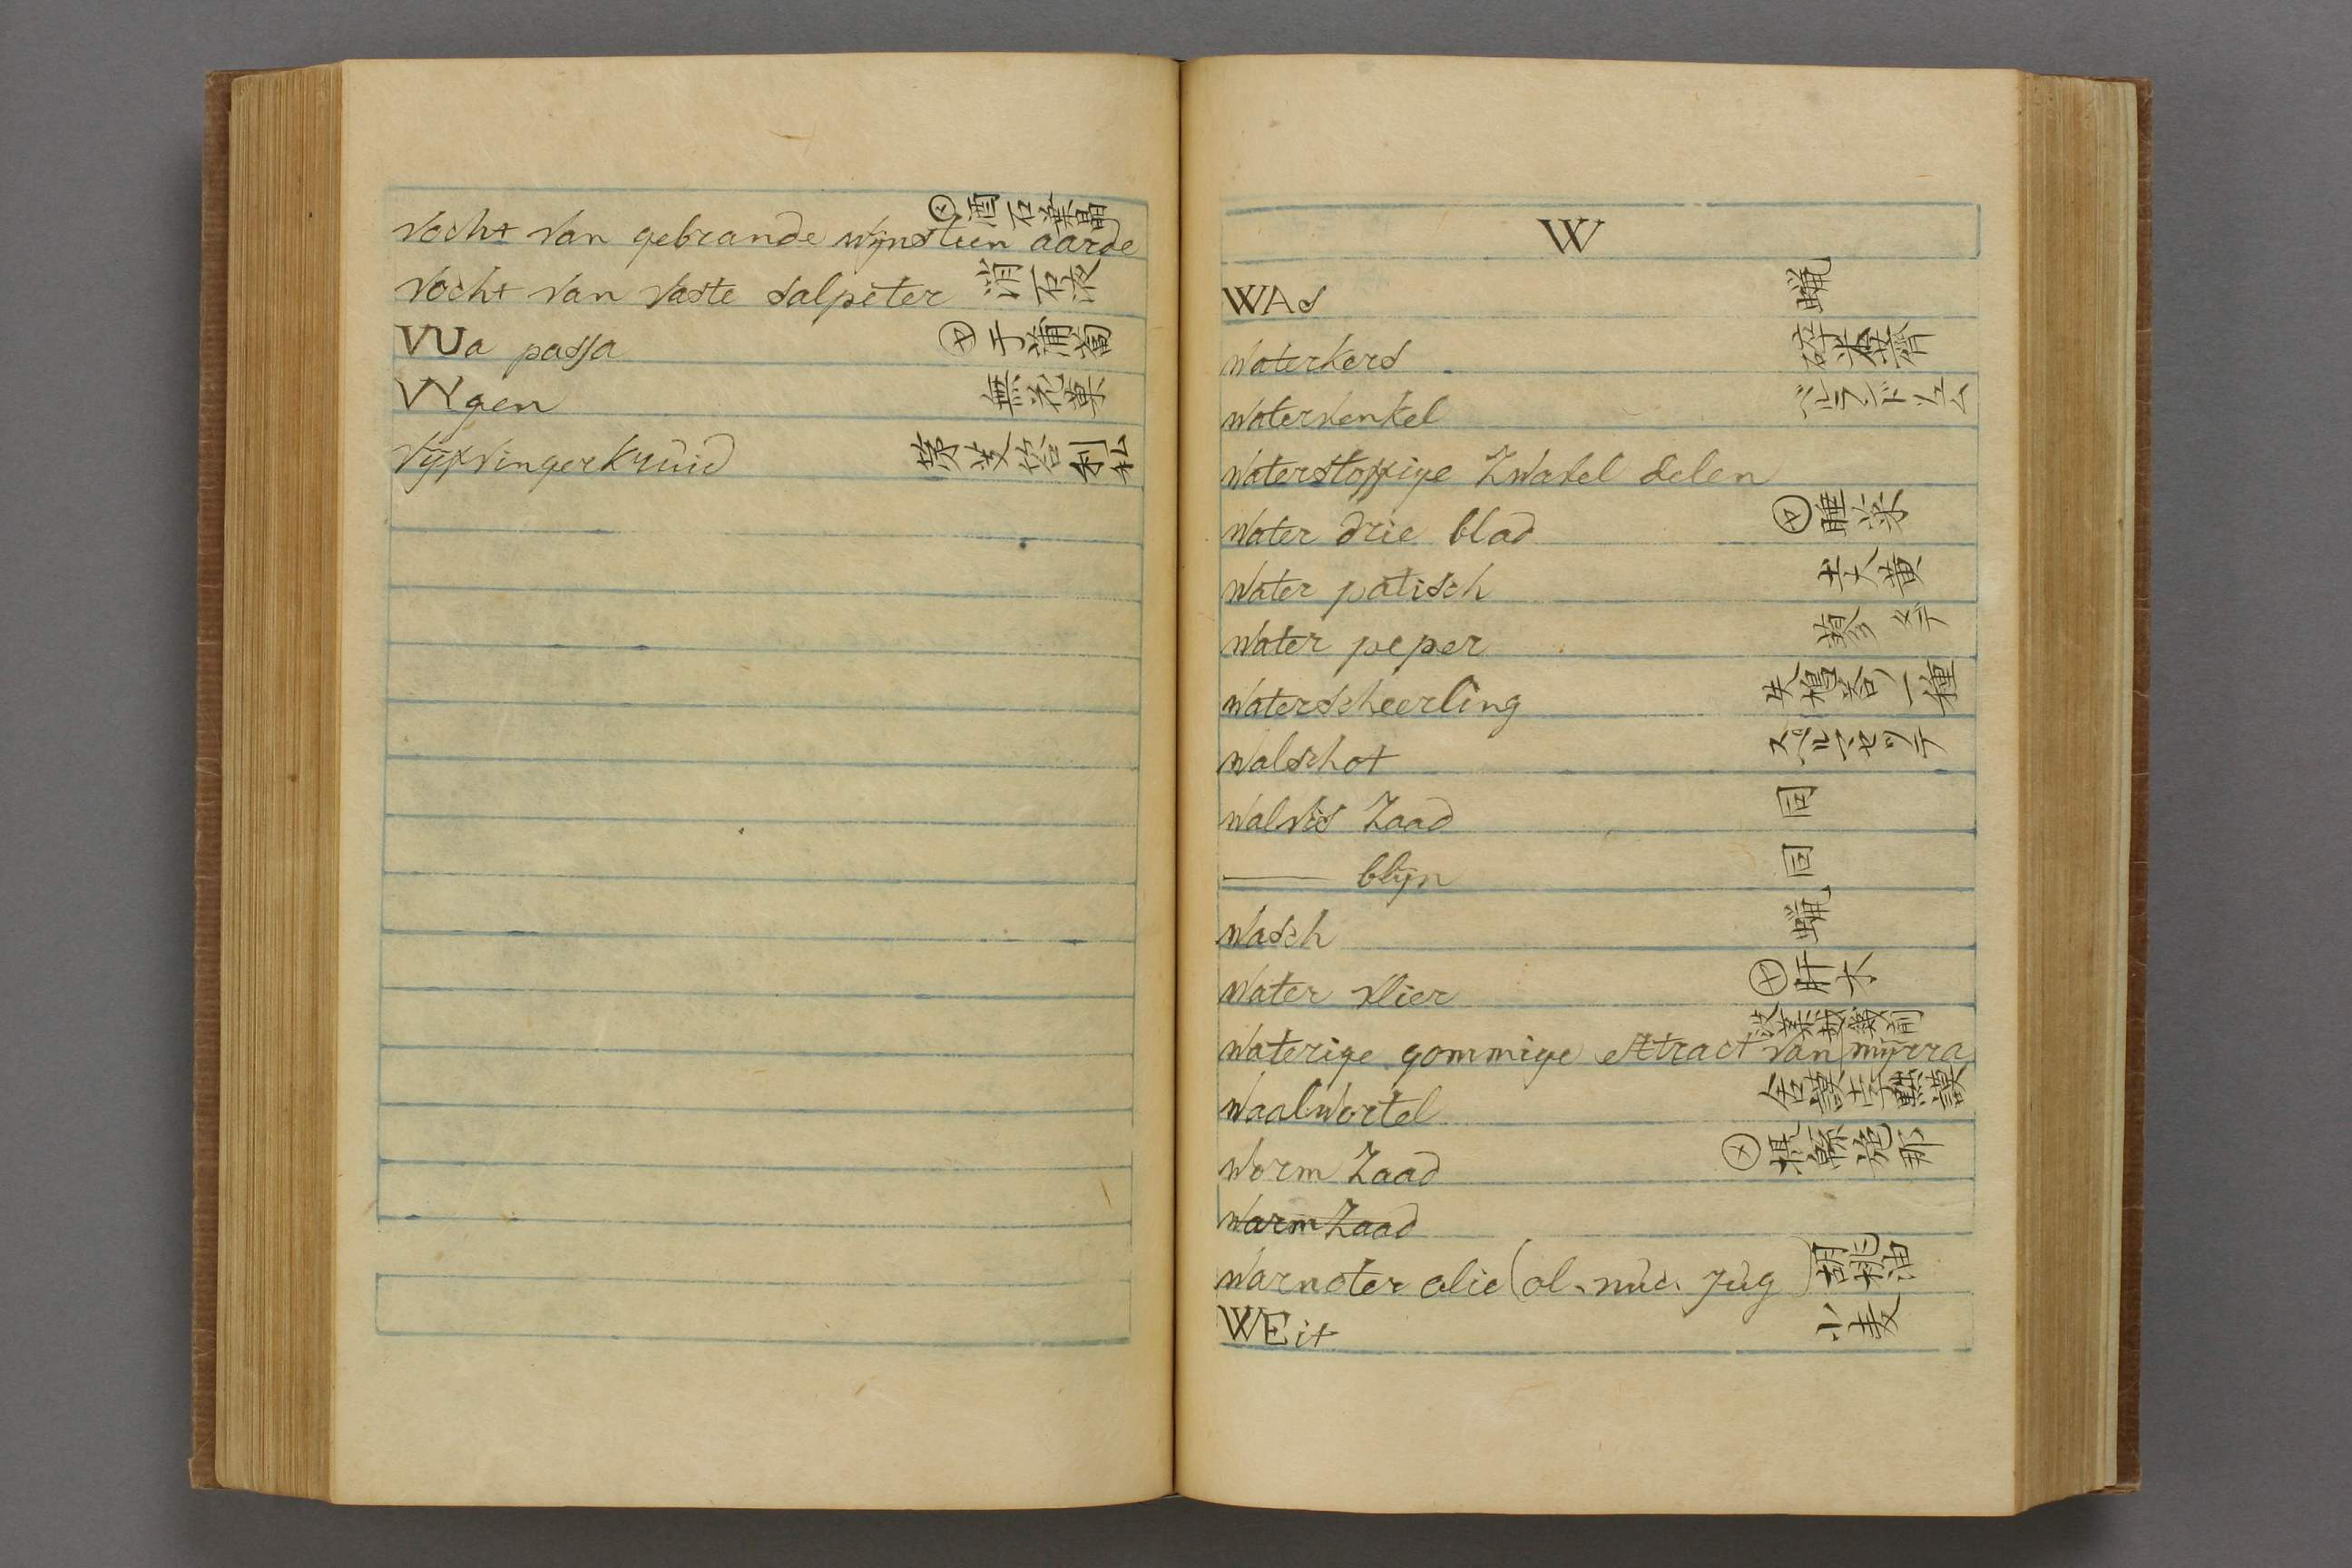 vocht van gebrande wijnsteen aarde 酒石葉晶
vocht van vaste salpeter 消石液
VUa passa 干蒲萄
VYgen 無花菓
vijfvingerkruid
W
WAs 蝋
waterkers
watervenkel ペルランドリュム
waterstoffige zwavel delen
water drie blad 睡菜
water patisch 土大黄
water peper 蓼 タデ
waterscheerling 失鳩答ノ一種
walschot スペルマセッテ
walvis zaad 同
—— blijn 同
wasch 蝋
water vlier 肝木
waterige gommige extract van mijrra
waalwortel
worm zaad
warm zaad
warnoter olie (ol. nuc. jug) 胡桃油
WEit 小麦